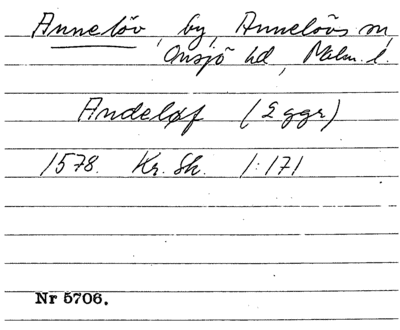 Annelöv, by, Annelövs sn,
Onsjö hd, Malm. l.
Andeløf (2 ggr)
1578. Kr. Sk. 1:171
Nr 5706.